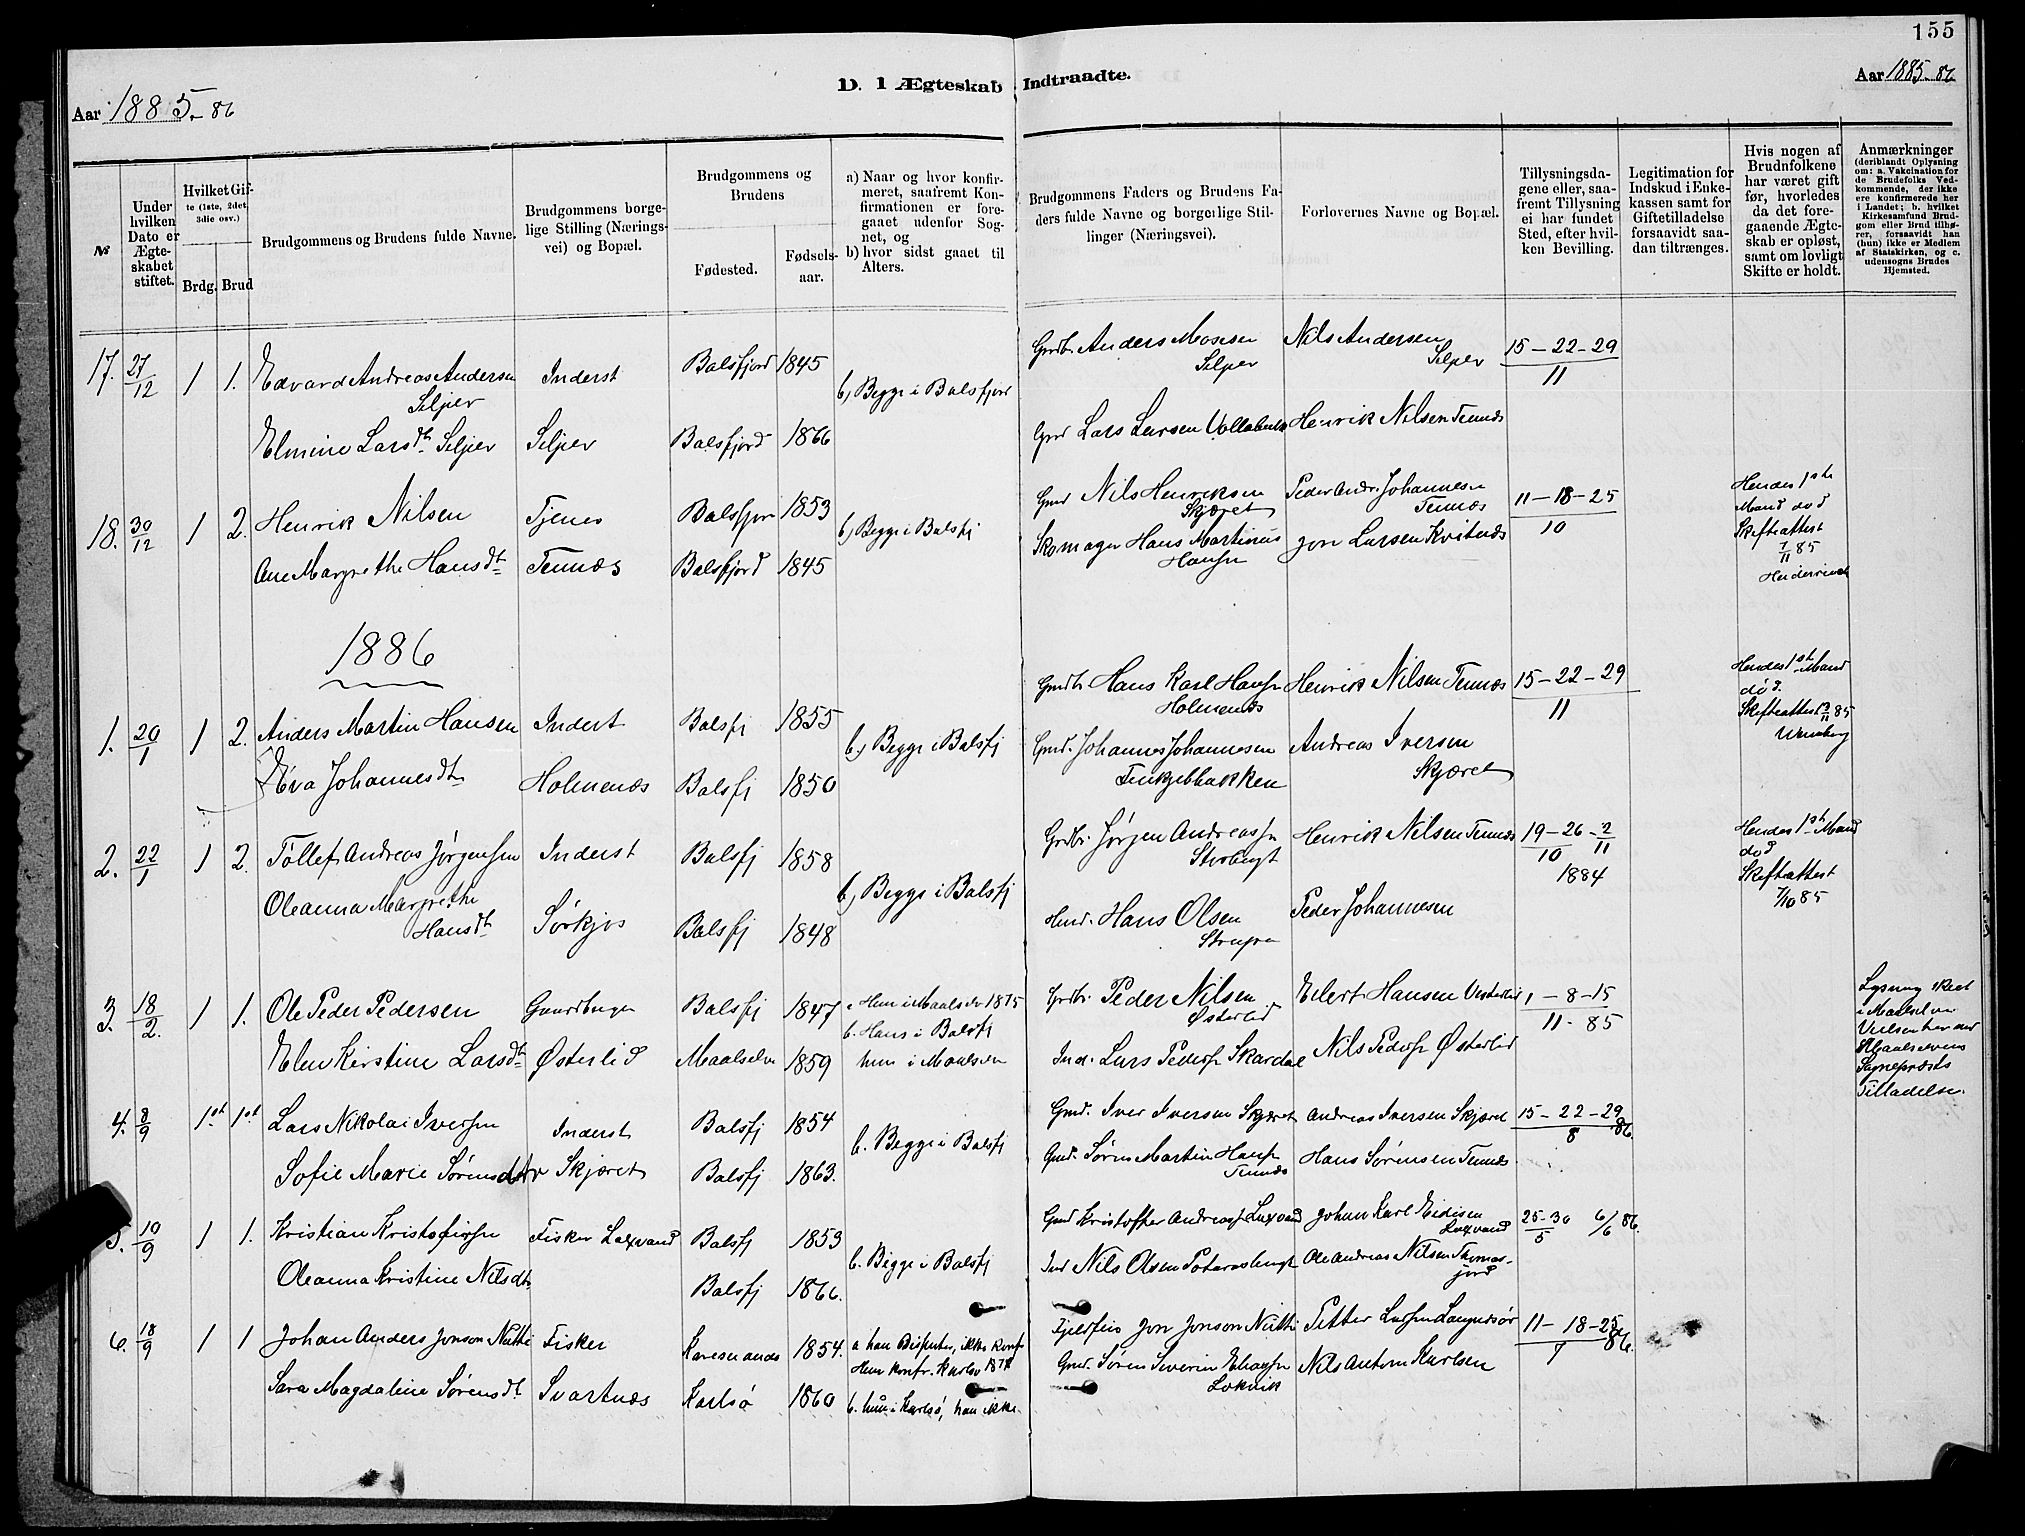 155
D. 1 Ægteskab Indtraadte.
Aar 1885-86
Aar 1885-86
No
Under hvilken Dato er Ægteskabet stiftet.
Hvilket Gifte (1ste, 2det, 3die osv.)
Brdg. Brud
Brudgommens og Brudens fulde Navne.
Brudgommens borgelige Stilling (Næringsvei) og Bopæl.
Brudgommens og Brudens
Fødested.
Fødselsaar.
a) Naar og hvor konfirmeret, saafremt Konfirmationen er foregaaet udenfor Sognet, og
b) hvor sidst gaaet til Alters.
Brudgommens Faders og Brudens Faders fulde Navne og borgerlige Stillinger (Næringsvei).
Forlovernes Navne og Bopæl.
Tillysningsdagene eller, saafremt Tillysning ei har fundet Sted, efter hvilken Bevilling.
Legitimation for Indskud i Enkekassen samt for Giftetilladelse forsaavidt saadan tiltrænges.
Hvis nogen af Brudnfolkene har været gift før, hvorledes da det foregaaende Ægteskab er opløst, samt om lovligt Skifte er holdt.
Anmærkninger
(deriblandt Oplysning om: a. Vakcination for de Brudefolks Vedkommende, der ikke ere konfirmerede her i Landet; b. hvilket Kirkesamfund Brudgom eller Brud tilhører, forsaavidt han (hun) ikke er Medlem af Statskirken, og c. udensogns Brudes Hjemsted.
17. 27/12 1 1. Edvard Andreas Andersen Seljev Inderst Balsfjord 1845 b, Begge i Balsfjord Grdb. Anders Mosesen Seljev Nils Andersen Seljev 15-22-29/11
Elmine Larsdtr Seljev Seljev Balsfjord 1866 Lars Larsen Henrik Nilsen Tennæs
18. 30/12 1 2. Henrik Nilsen Tjenes Balsfjor 1853 b, Begge i Balsfj Nils Henriksen Skjæret Peder Andr. Johannesen Tennæs 11-18-25/10 Hendes 1ste Mand død Skifteattest 7/11 85
Ane Margrethe Hansdt Tennæs Balsfjord 1845 Skomager Hans Martinus Hansen Jon Larsen Kvitnæs
1886
1. 20/1 1 2. Anders Martin Hansen Inderst Balsfj 1855 b, Begge i Balsfj Grdb. Hans Karl Hansen Holmenæs Henrik Nilsen Tennæs 15-22-29/11 Hendes 1ste Mand død. Skifteattest 85
Eva Johannesdt Holmenæs Balsfj 1850 Johannes Johannesen Andreas Iversen Skjæret
2. 22/1 1 2. Tollef Andreas Jørgensen Inderst Balsfj 1858 b, Begge i Balsfj Grdbr. Jørgen Andreassen Henrik Nilsen Tennæs 19-26/10-2/11 1884 Hendes 1ste Mand død Skifteattest 7/10 85
Oleanna Margrethe Hansdt Sørkjos Balsfj 1848 Hans Olsen Peder Johannesen
3. 18/2. 1 1. Ole Peder Pedersen Gaardbruger Balsfj 1847 a. Hun i Maalselv 1875 b. Hans i Balsfj hun i Maalselven Grdbr. Peder Nilsen Østerlid Edert Hansen Vesterlid 1-8-15/11-85 Lysning skeet i Maalselven Maalselvens Sognepræsts Tilladelse.
Elen Kirstine Larsdt Østerlid Maalselv 1859 Ind. Lars Pedersen Skardal Nils Pedersen Østerlid
4. 8/9 1st 1st Lars Nikolai Iversen Inderst Balsfj 1854 b. Begge i Balsfj Iver Iversen Skjæret Andreas Iversen Skjæret 15-22-29/8 86.
Sofie Marie Sørensdtr Skjæret Balsfj 1863. Søren Martin Hansen Tennæs Hans Sørensen Tennæs
5. 10/9 1 1. Kristian Kristofersen Fisker Laxvand Balsfj 1853 b. Begge i Balsfj Kristoffer Andreass. Laxvand Johan Karl Eidisen Laxvand 25-30/5 6/6 86.
Oleanna Kristine Nilsdt Balsfj 1866. Ind Nils Olsen Ole Andreas Nilsen Thomasjord
6. 18/9 1 1 Johan Anders Jonson Nutti Fisker Karesuando 1854. a han ikke konf. Hun konf. Karlsø b. hun i Karlsø, han ikke. Jon Jonson Nutti Petter Larsen 11-18-25/7 86.
Sara Magdaline Sørensdt Svartnæs Karlsø 1860 Søren Severin Lokvik Nils Anton Karlsen